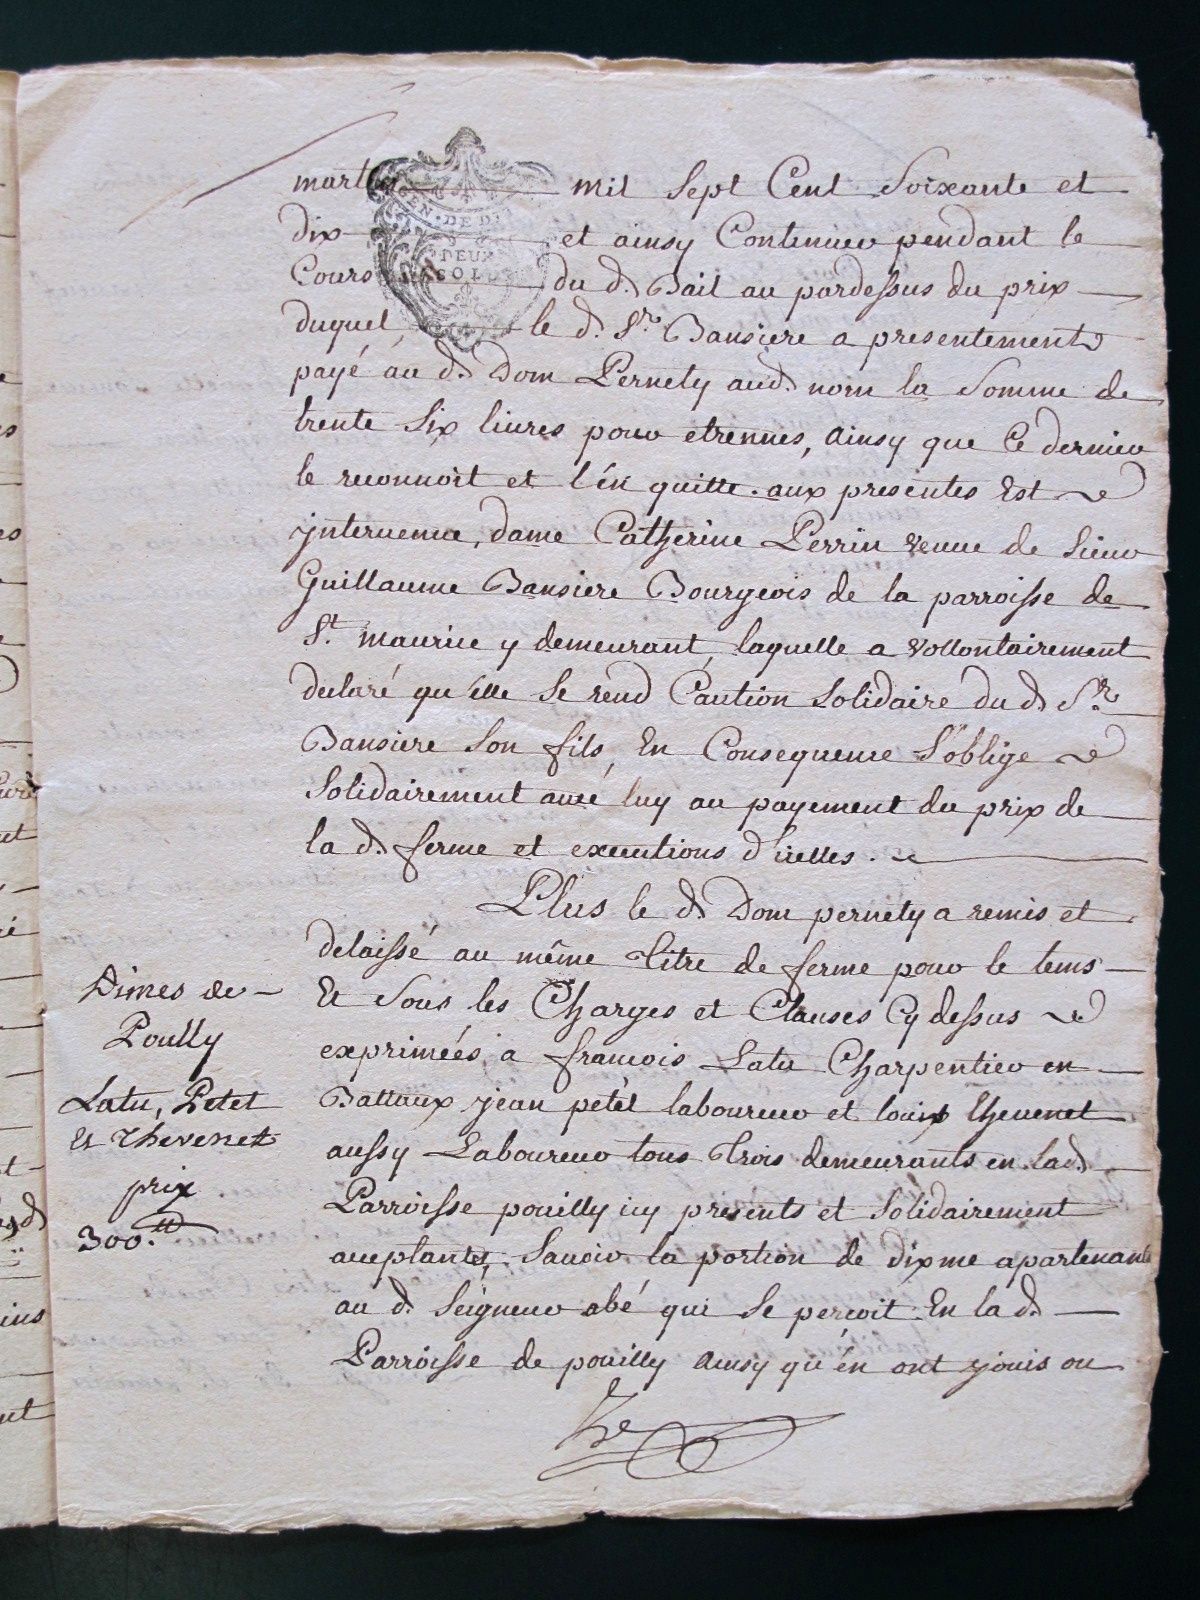 mil sept Cent Soixante et
dix et ainsy Continuer pendant le
Cours du d. Bail au pardessus du prix
duquel le d. Sr. Bansiere a presentement
payé au d. Dom Pernety aud. nom la Somme de
trente Six livres pour etrennes, ainsy que Ce dernier
le reconnoit et l'én quitte. aux presentes Est
jntervenue, dame Catherine Perrin veuve de Sieur
Guillaume Bansiere Bourgeois de la parroisse de
St. maurice y demeurant, laquelle a vollontairement
declaré qu'elle Se rend Caution Solidaire du d. Sr.
Bansiere Son fils, En Consequence S'oblige
Solidairement avec luy au payement du prix de
la d. ferme et executions d'icelles.
Plus le d. Dom pernety a remis et
delaissé au même Titre de ferme pour le tems
Et Sous les Charges et Clauses Cy dessus
exprimées a francois Latu Charpentier en
Battaux jean petet laboureur et louis thevenet
aussy Laboureur tous Trois demeurants en lad.
Parroisse pouilly icy presents et Solidairement
acceptants, Savoir la portion de dixme apartenante
au d. Seigneur abé qui Se percoit En la d.
Parroisse de pouilly ainsy qu'én ont jouis ou
Dimes de
Poully
Latu, Petet
Et Thevenet
prix
300.tt
GEN. DE
DEUX
SOLS